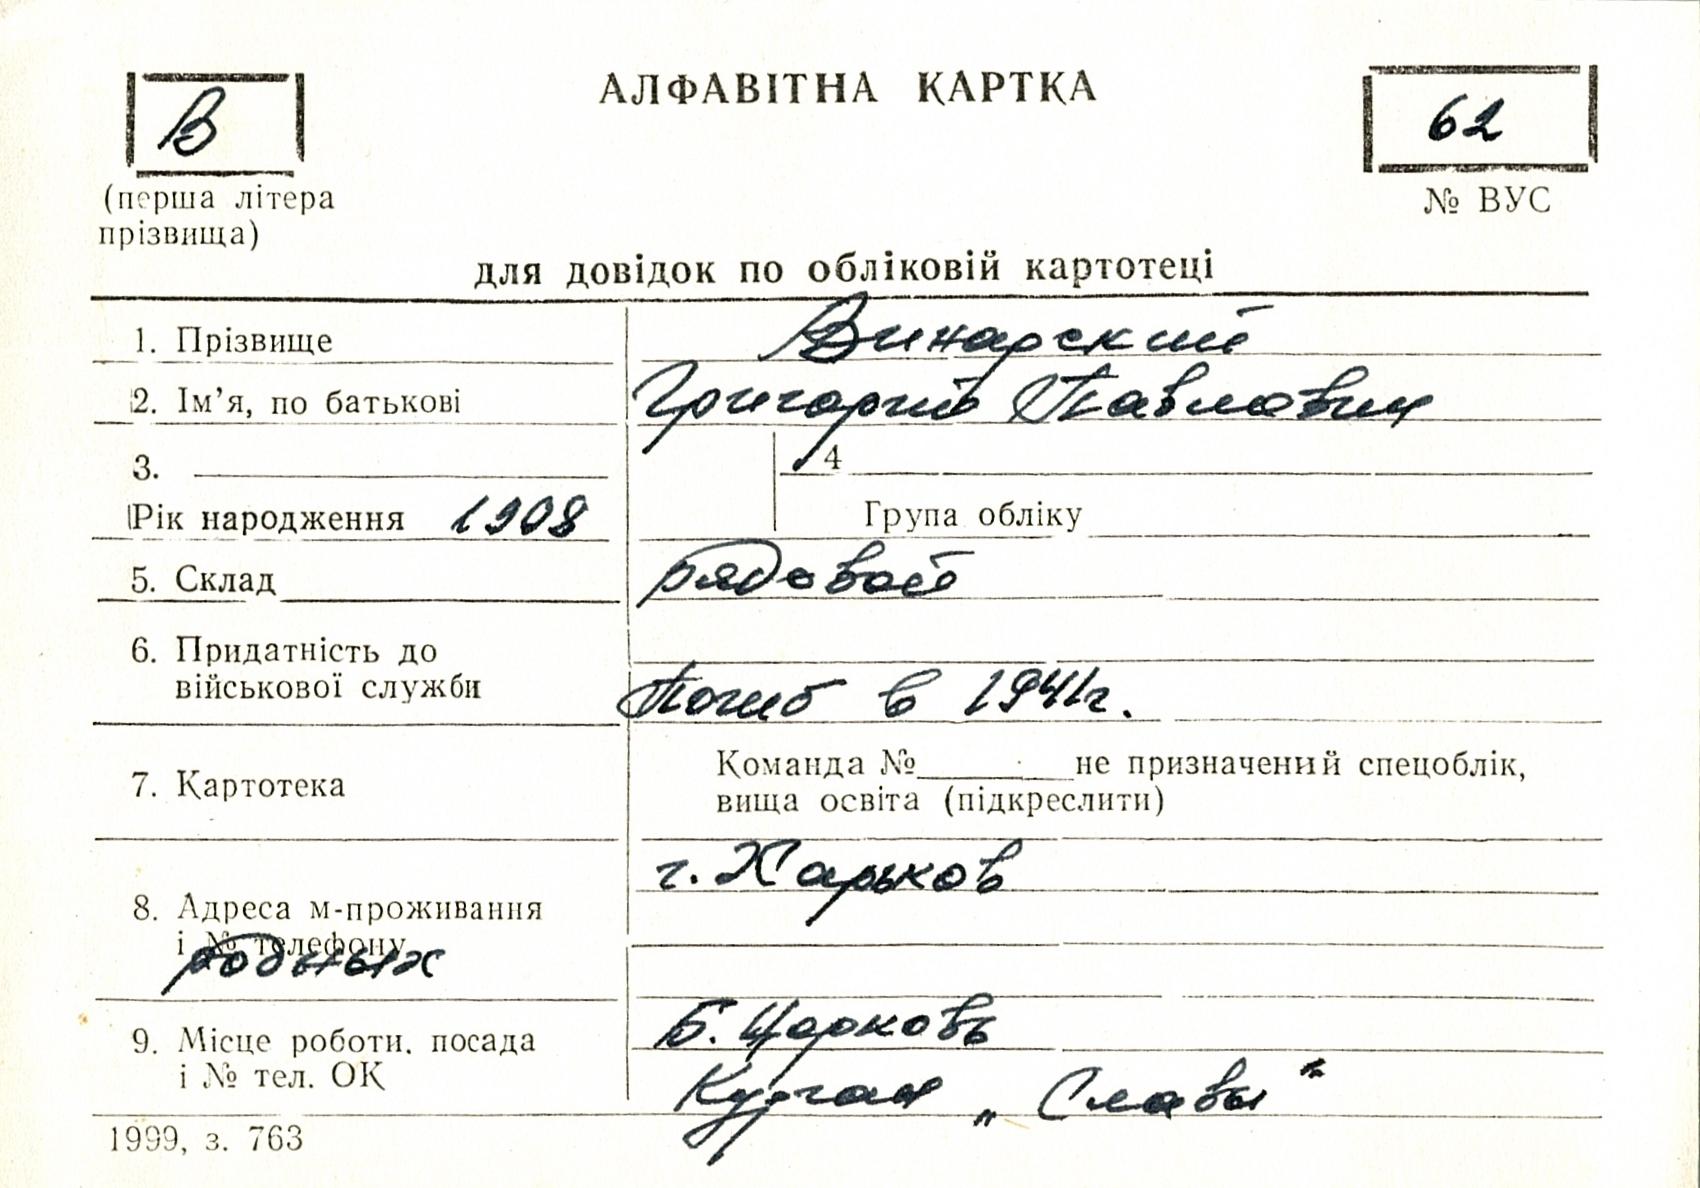 АЛФАВІТНА КАРТКА
В
62
(перша літера
прізвища)
№ ВУС
для довідок по обліковій картотеці
1. Прізвище Винарский
2. Ім’я, по батькові Григорий Павлович
3.
4
Рік народження 1908
Група обліку
5. Склад рядовой
6. Придатність до
військової служби Погиб в 1941г.
7. Картотека
Команда №______ не призначений спецоблік,
вища освіта (підкреслити)
г. Харьков
8. Адреса м-проживання
і № телефону
родных
Б. Церковь
9. Місце роботи, посада
і № тел. ОК
Курган „Славы"
1999, з. 763